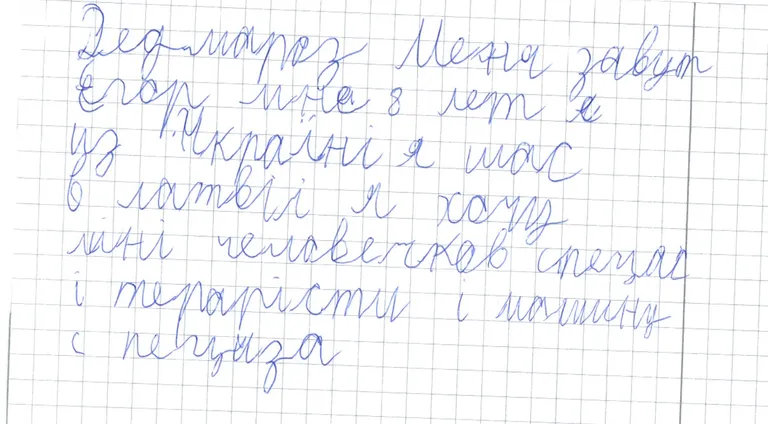 Дед мароз Меня завут
Єгор мне 8 лет я
из Україні я шас
в латвії я хочу
міні человечков спецас
і терарісти і машину